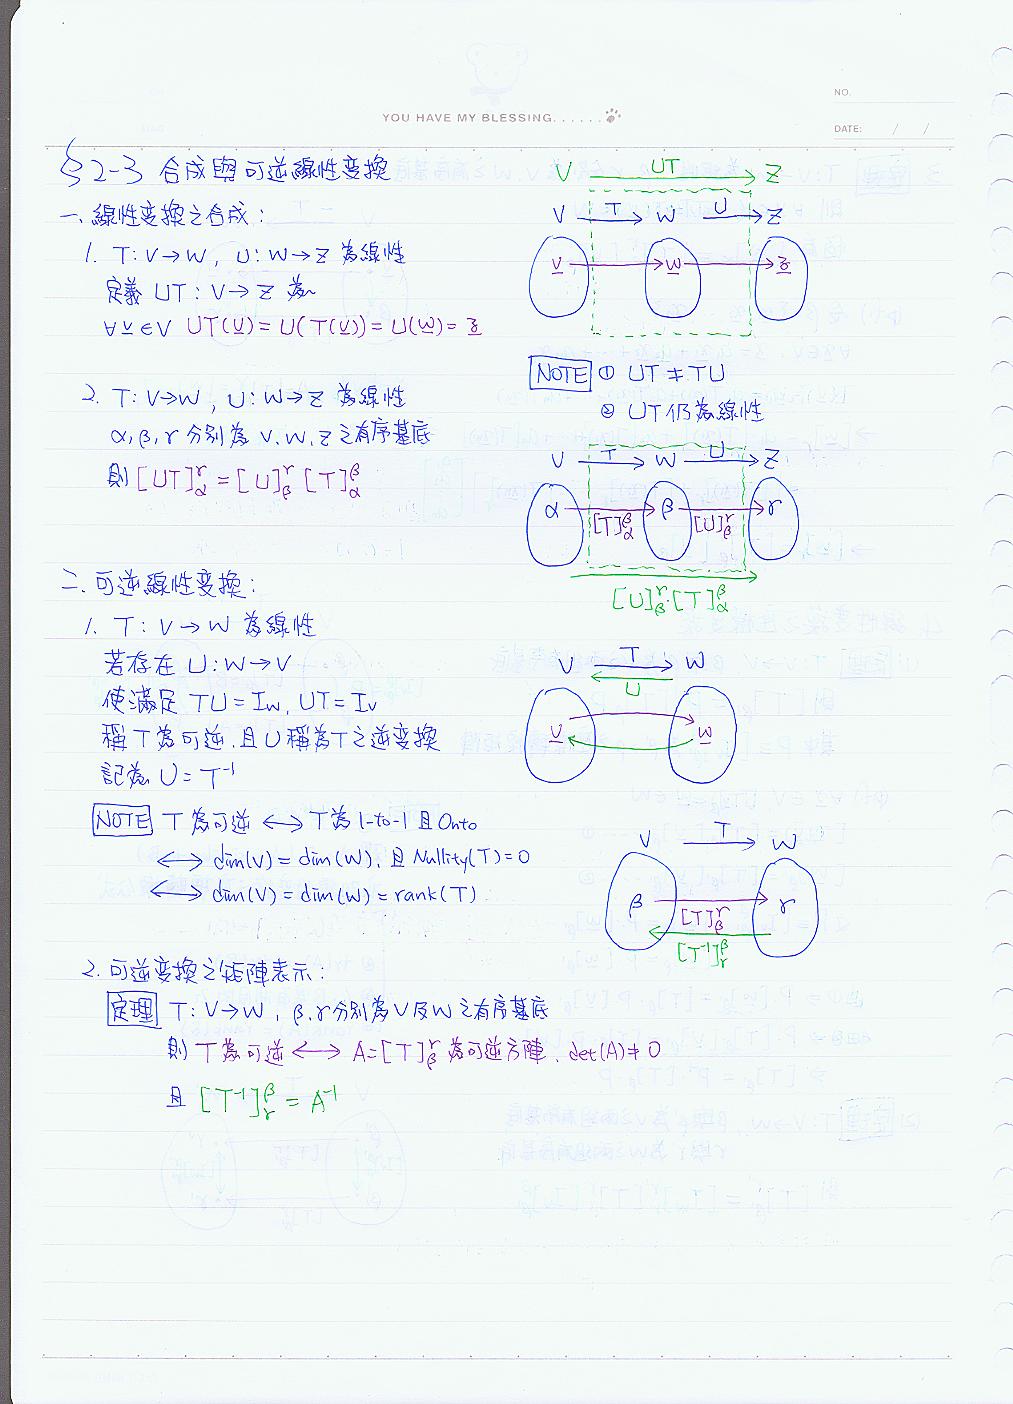 YOU HAVE MY BLESSING......
NO.
DATE: / /
§2-3 合成與可逆線性變換
一、線性變換之合成:
1. T: V→W, U: W→Z 為線性
定義 UT: V→Z 為
∀v∈V UT(v) = U(T(v)) = U(w) = z
V UT Z
V T W U Z
v w z
NOTE ① UT ≠ TU
② UT仍為線性
2. T: V→W, U: W→Z 為線性
α, β, γ 分別為 V, W, Z 之有序基底
則 [UT]_α^γ = [U]_β^γ [T]_α^β
V T W U Z
α [T]_α^β β [U]_β^γ γ
[U]_β^γ·[T]_α^β
二、可逆線性變換:
1. T: V→W 為線性
若存在 U: W→V
使滿足 TU = I_W, UT = I_V
稱 T 為可逆, 且 U 稱為 T 之逆變換
記為 U = T⁻¹
V T W
U
v w
NOTE T 為可逆 ↔ T 為 1-to-1 且 Onto
↔ dim(V) = dim(W), 且 Nullity(T) = 0
↔ dim(V) = dim(W) = rank(T)
V T W
β [T]_β^γ γ
[T⁻¹]_γ^β
2. 可逆變換之矩陣表示:
定理 T: V→W, β, γ 分別為 V 及 W 之有序基底
則 T 為可逆 ↔ A = [T]_β^γ 為可逆方陣, det(A) ≠ 0
且 [T⁻¹]_γ^β = A⁻¹